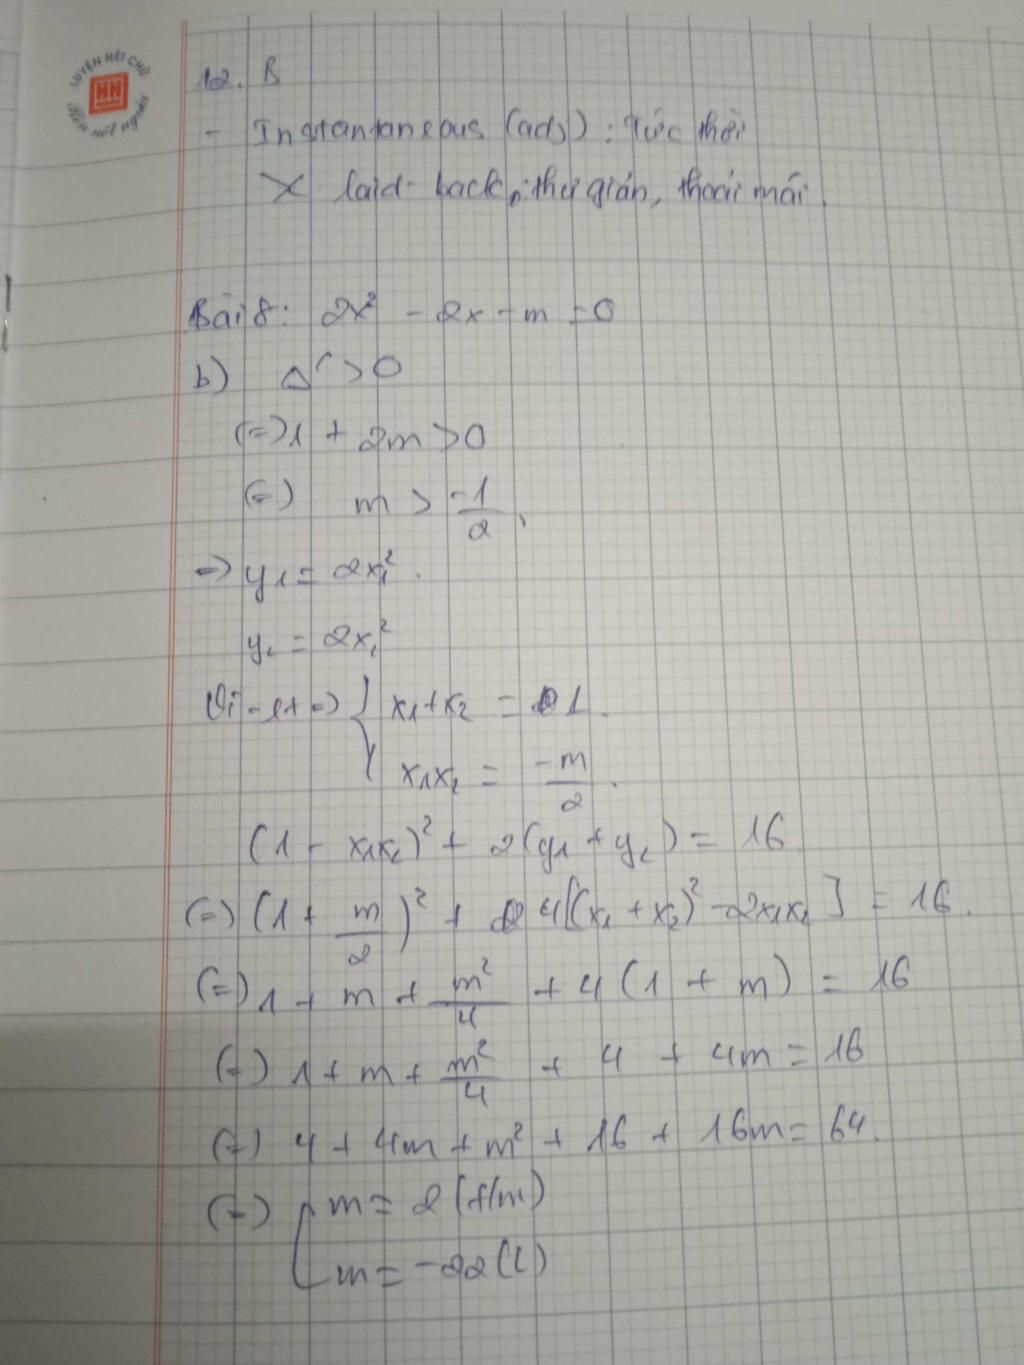 LUYỆN NÉT CHỮ
HH
Rèn nét người
12. B
- Instantaneous (adj) : tức thời
X laid-back : thư giãn, thoải mái.
Bài 8: 2x² - 2x - m = 0
b) Δ' > 0
(=) 1 + 2m > 0
(=) m > -1/2
=> y₁ = 2x₁².
y₂ = 2x₂²
Vi-et => { x₁+x₂ = 1.
x₁x₂ = -m/2.
(1 - x₁x₂)² + 2(y₁ + y₂) = 16
(=) (1 + m/2)² + 4[(x₁ + x₂)² - 2x₁x₂] = 16.
(=) 1 + m + m²/4 + 4(1 + m) = 16
(=) 1 + m + m²/4 + 4 + 4m = 16
(=) 4 + 4m + m² + 16 + 16m = 64.
(=) [ m = 2 (t/m)
m = -22 (L)